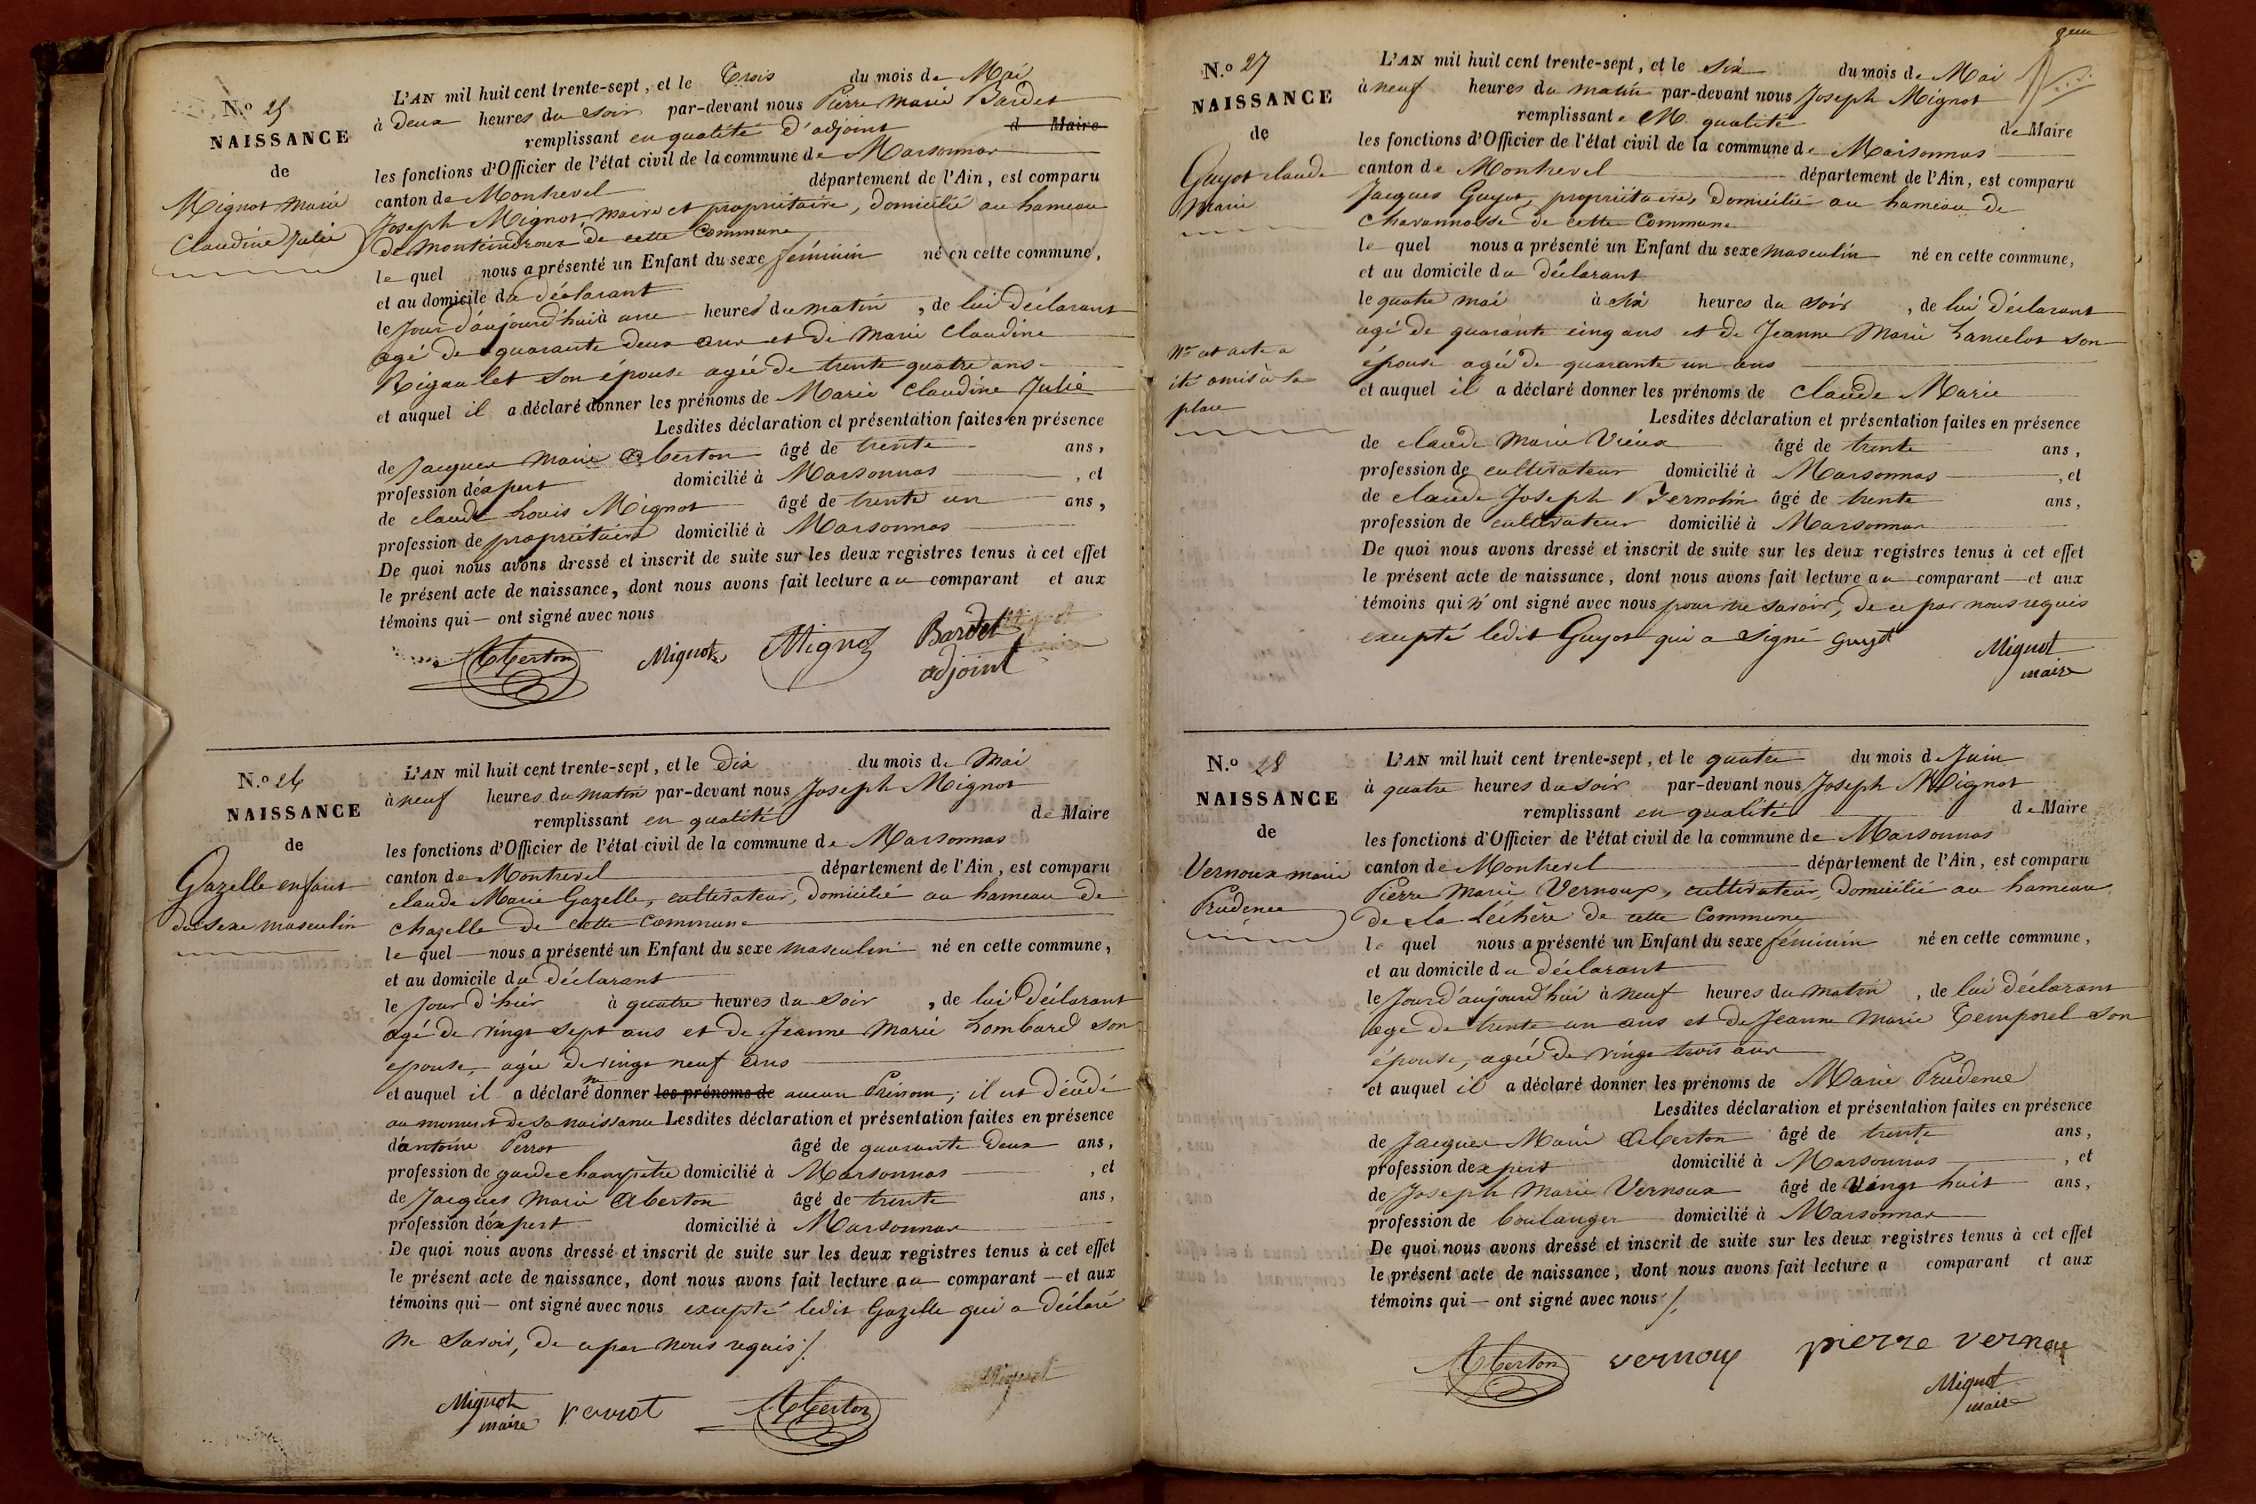 N.o 25
NAISSANCE
de
Mignot Marie
Claudine Julie
L'AN mil huit cent trente-sept, et le Trois du mois de Mai
à deux heures du soir par-devant nous Pierre Marie Bardet
remplissant en qualité d'adjoint d Maire
les fonctions d'Officier de l'état civil de la commune de Marsonnas
canton de Montrevel département de l'Ain, est comparu
Joseph Mignot, maire et propriétaire, domicilié au hameau
de de cette Commune
le quel nous a présenté un Enfant du sexe féminin né en cette commune,
et au domicile du déclarant
le Jour d'aujourd'hui à une heures du matin, de lui Déclarant
agé de quarante deux ans et de Marie Claudine
Rigaulet son épouse agée de trente quatre ans
et auquel il a déclaré donner les prénoms de Marie Claudine Julie
Lesdites déclaration et présentation faites en présence
de Jacques Marie Aberton âgé de trente ans,
profession d'expert domicilié à Marsonnas, et
de claude Louis Mignot âgé de trente un ans,
profession de propriétaire domicilié à Marsonnas
De quoi nous avons dressé et inscrit de suite sur les deux registres tenus à cet effet
le présent acte de naissance, dont nous avons fait lecture au comparant et aux
témoins qui ont signé avec nous
Aberton Mignot Mignot Bardet
adjoint
N.o 26
NAISSANCE
de
Gazelle enfant
du sexe masculin
L'AN mil huit cent trente-sept, et le Dix du mois de Mai
à neuf heures du matin par-devant nous Joseph Mignot
remplissant en qualité de Maire
les fonctions d'Officier de l'état civil de la commune de Marsonnas
canton de Montrevel département de l'Ain, est comparu
claude Marie Gazelle, cultivateur, domicilié au hameau de
chazelle de cette Commune
le quel nous a présenté un Enfant du sexe masculin né en cette commune,
et au domicile du déclarant
le Jour d'hier à quatre heures du soir, de lui Déclarant
agé de vingt sept ans et de Jeanne Marie Lombard son
epouse, agée de vingt neuf ans
et auquel il a déclaré ne donner les prénoms de aucun Prénom, il est décédé
au moment de sa naissance Lesdites déclaration et présentation faites en présence
d'antoine Perrot âgé de quarante deux ans,
profession de garde champêtre domicilié à Marsonnas, et
de Jacques Marie Aberton âgé de trente ans,
profession d'expert domicilié à Marsonnas
De quoi nous avons dressé et inscrit de suite sur les deux registres tenus à cet effet
le présent acte de naissance, dont nous avons fait lecture au comparant et aux
témoins qui ont signé avec nous excepté ledit Gazelle qui a déclaré
ne savoir, de ce par nous requis ./.
Mignot
maire perrot Aberton
N.o 27
NAISSANCE
de
Guyot claude
Marie
nta cet acte a
été omis à sa
place
L'AN mil huit cent trente-sept, et le six du mois de Mai
à neuf heures du matin par-devant nous Joseph Mignot
remplissant e N. qualité de Maire
les fonctions d'Officier de l'état civil de la commune de Marsonnas
canton de Montrevel département de l'Ain, est comparu
Jacques Guyot, propriétaire, domicilié au hameau de
chavannosse de cette Commune
le quel nous a présenté un Enfant du sexe masculin né en cette commune,
et au domicile du déclarant
le quatre mai à six heures du soir, de lui déclarant
agé de quarante cinq ans et de Jeanne Marie Lancelot son
épouse agée de quarante un ans
et auquel il a déclaré donner les prénoms de Claude Marie
Lesdites déclaration et présentation faites en présence
de claude Marie Vieux âgé de trente ans,
profession de cultivateur domicilié à Marsonnas, et
de claude Joseph Bernolin âgé de trente ans,
profession de cultivateur domicilié à Marsonnas
De quoi nous avons dressé et inscrit de suite sur les deux registres tenus à cet effet
le présent acte de naissance, dont nous avons fait lecture au comparant et aux
témoins qui n'ont signé avec nous pour ne savoir, de ce par nous requis
excepté ledit Guyot qui a signé guyot
Mignot
maire
N.o 28
NAISSANCE
de
Vernoux marie
Prudence
L'AN mil huit cent trente-sept, et le quatre du mois de Juin
à quatre heures du soir par-devant nous Joseph Mignot
remplissant en qualité de Maire
les fonctions d'Officier de l'état civil de la commune de Marsonnas
canton de Montrevel département de l'Ain, est comparu
Pierre Marie Vernoux, cultivateur, domicilié au hameau
de la Léchère de cette Commune
le quel nous a présenté un Enfant du sexe féminin né en cette commune,
et au domicile du déclarant
le Jour d'aujourd'hui à neuf heures du matin, de lui déclarant
agé de trente un ans et de Jeanne Marie Temporel son
épouse, agée de vingt trois ans
et auquel il a déclaré donner les prénoms de Marie Prudence
Lesdites déclaration et présentation faites en présence
de Jacques Marie Aberton âgé de trente ans,
profession d'expert domicilié à Marsonnas, et
de Joseph Marie Vernoux âgé de Vingt huit ans,
profession de boulanger domicilié à Marsonnas
De quoi nous avons dressé et inscrit de suite sur les deux registres tenus à cet effet
le présent acte de naissance, dont nous avons fait lecture a comparant et aux
témoins qui ont signé avec nous ./.
Aberton vernoux pierre vernoux
Mignot
maire